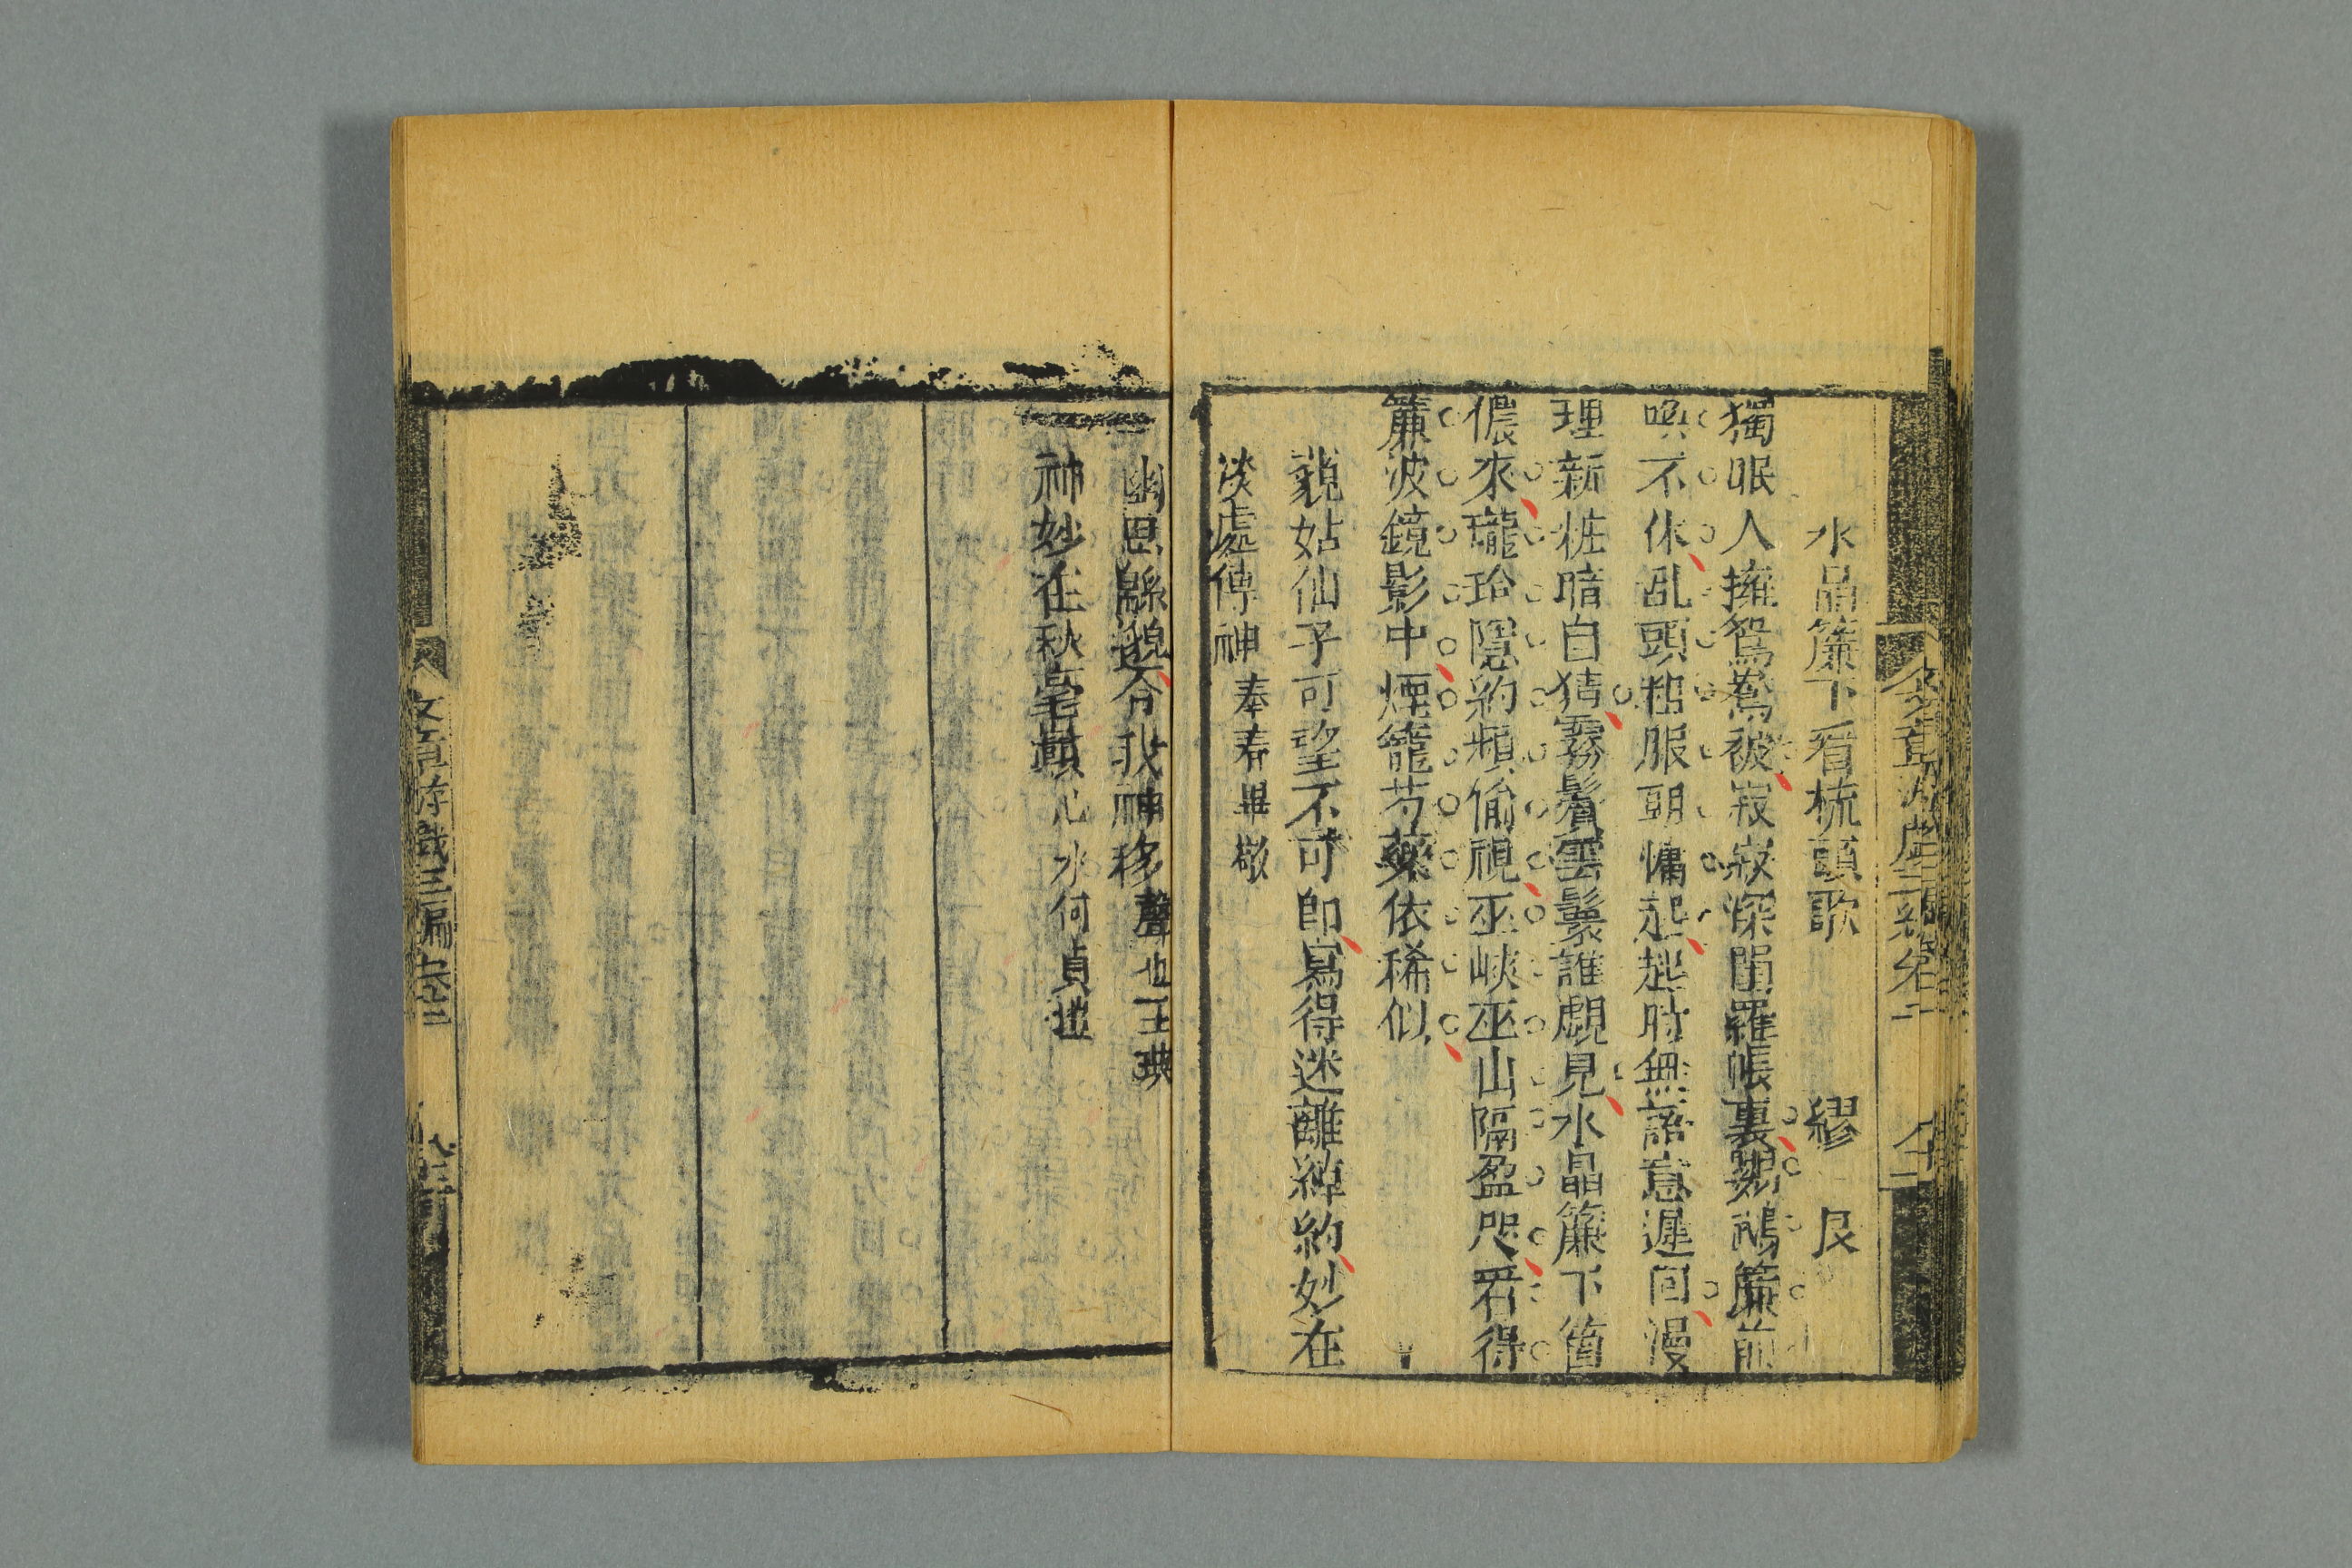 水晶簾下看梳頭歌 繆艮
獨眠人擁鴛鴦被寂寂深閨羅帳裏鸚鵡簾前
喚不休乱頭粗服朝慵起起時無語意遲回漫
理新粧暗自猜霧鬢雲鬟誰覷見水晶簾下箇
儂來瓏玲隱約頻偷視巫峽巫山隔盈咫若得
簾波鏡影中煙籠芍藥依稀似
藐姑仙子可望不可即寫得迷離綽約妙在
淡處傳神
幽思緜邈令我神移
神妙在秋毫顛
文章游戲三編 卷二